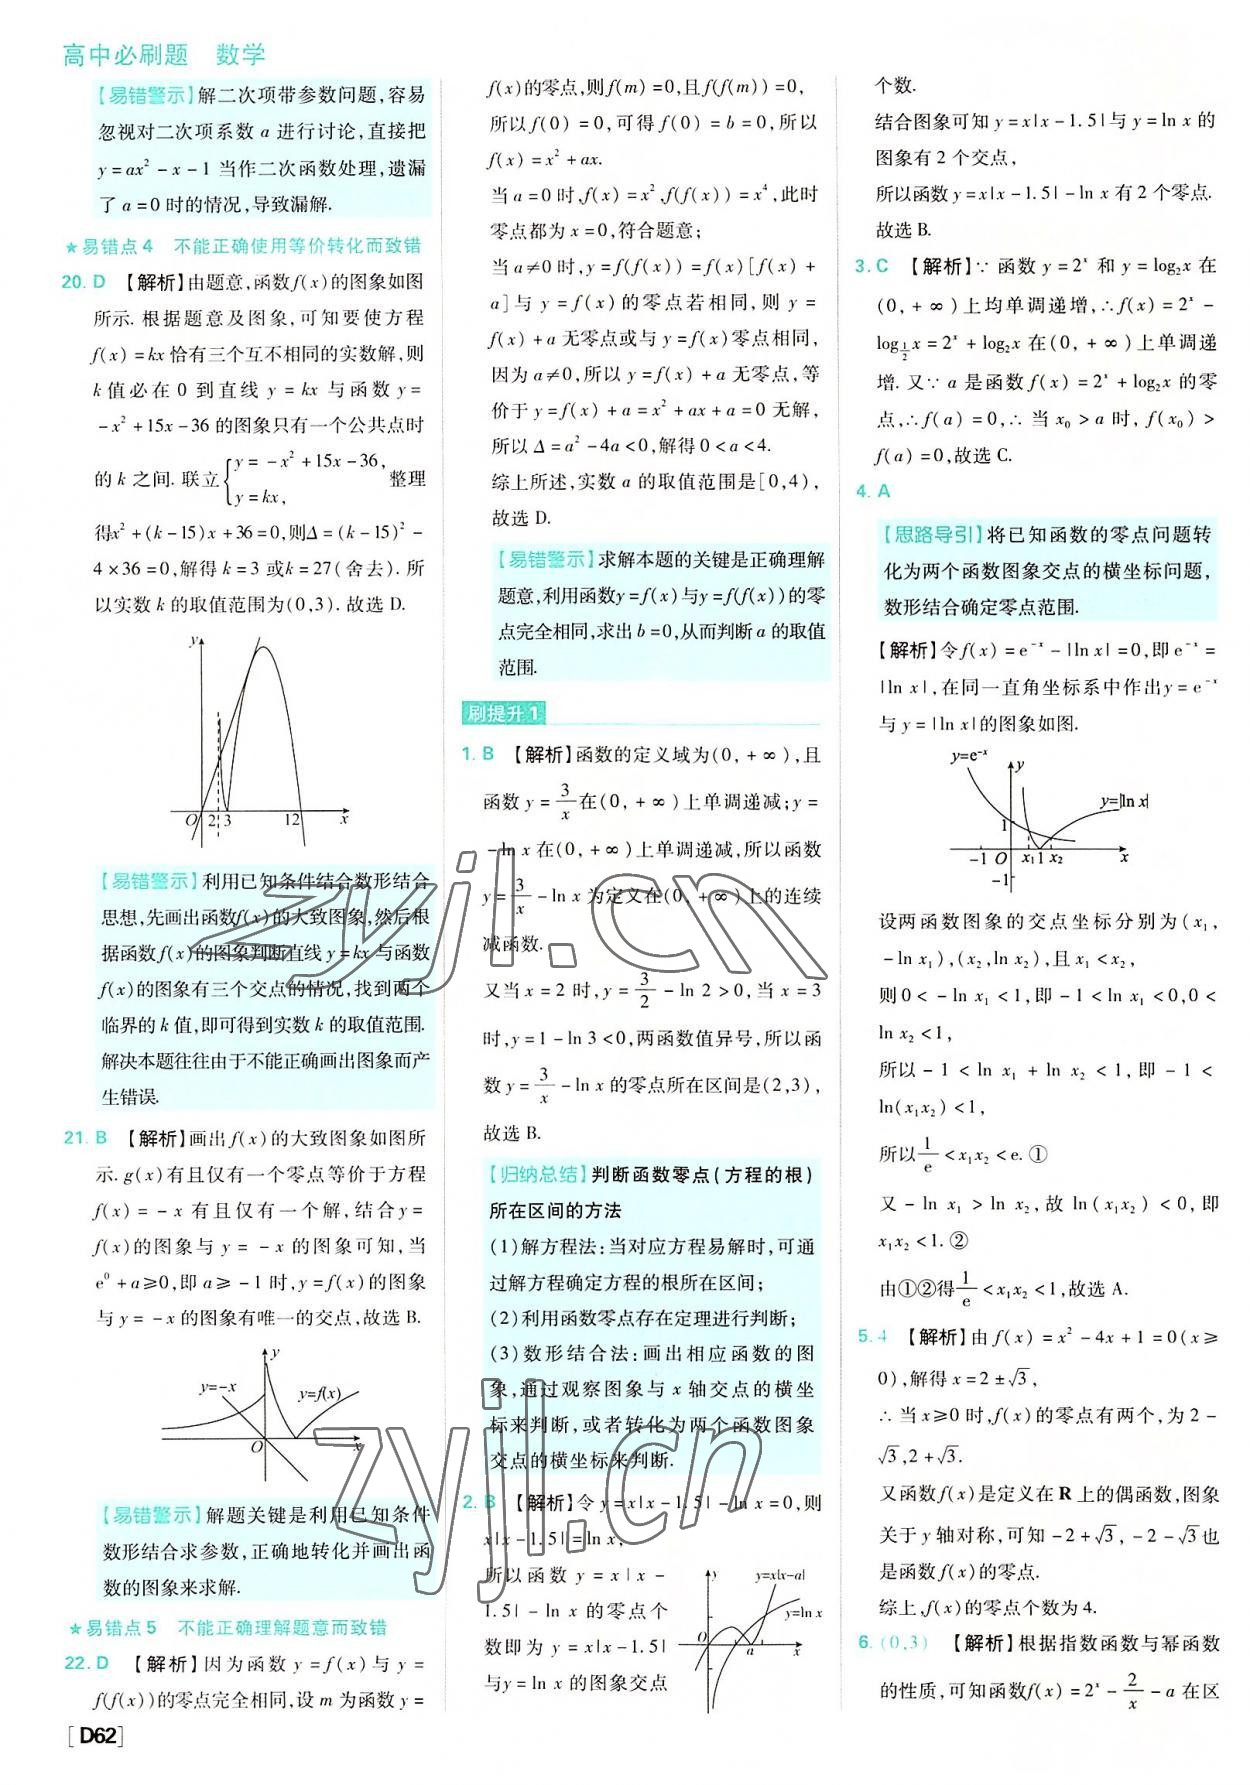 高中必刷题 数学
【易错警示】解二次项带参数问题,容易
忽视对二次项系数 a 进行讨论,直接把
y=ax²-x-1 当作二次函数处理,遗漏
了 a=0 时的情况,导致漏解.
★易错点4 不能正确使用等价转化而致错
20. D 【解析】由题意,函数f(x)的图象如图
所示. 根据题意及图象,可知要使方程
f(x)=kx 恰有三个互不相同的实数解,则
k 值必在 0 到直线 y=kx 与函数 y=
-x²+15x-36 的图象只有一个公共点时
的 k 之间. 联立{y=-x²+15x-36, y=kx, 整理
得x²+(k-15)x+36=0,则Δ=(k-15)²-
4×36=0,解得 k=3 或k=27(舍去). 所
以实数 k 的取值范围为(0,3). 故选 D.
y
O 2 3 12 x
【易错警示】利用已知条件结合数形结合
思想,先画出函数f(x)的大致图象,然后根
据函数f(x)的图象判断直线 y=kx 与函数
f(x)的图象有三个交点的情况,找到两个
临界的 k 值,即可得到实数 k 的取值范围.
解决本题往往由于不能正确画出图象而产
生错误.
21. B 【解析】画出f(x)的大致图象如图所
示. g(x)有且仅有一个零点等价于方程
f(x)=-x 有且仅有一个解,结合y=
f(x)的图象与 y=-x 的图象可知,当
e⁰+a≥0,即 a≥-1 时,y=f(x)的图象
与 y=-x 的图象有唯一的交点,故选 B.
y
y=-x y=f(x)
O x
【易错警示】解题关键是利用已知条件
数形结合求参数,正确地转化并画出函
数的图象来求解.
★易错点5 不能正确理解题意而致错
22. D 【解析】因为函数 y=f(x)与 y=
f(f(x))的零点完全相同,设 m 为函数 y=
[D62]
f(x)的零点,则f(m)=0,且f(f(m))=0,
所以 f(0)=0,可得 f(0)=b=0,所以
f(x)=x²+ax.
当 a=0 时,f(x)=x²,f(f(x))=x⁴,此时
零点都为 x=0,符合题意;
当 a≠0 时,y=f(f(x))=f(x)[f(x)+
a]与 y=f(x)的零点若相同,则 y=
f(x)+a 无零点或与 y=f(x)零点相同,
因为 a≠0,所以 y=f(x)+a 无零点,等
价于 y=f(x)+a=x²+ax+a=0 无解,
所以 Δ=a²-4a<0,解得 0<a<4.
综上所述,实数 a 的取值范围是[0,4),
故选 D.
【易错警示】求解本题的关键是正确理解
题意,利用函数y=f(x)与y=f(f(x))的零
点完全相同,求出 b=0,从而判断 a 的取值
范围.
刷提升1
1. B 【解析】函数的定义域为(0,+∞),且
函数 y=3/x在(0,+∞)上单调递减;y=
-ln x 在(0,+∞)上单调递减,所以函数
y=3/x-ln x 为定义在(0,+∞)上的连续
减函数.
又当 x=2 时,y=3/2-ln 2>0,当 x=3
时,y=1-ln 3<0,两函数值异号,所以函
数 y=3/x-ln x 的零点所在区间是(2,3),
故选 B.
【归纳总结】判断函数零点(方程的根)
所在区间的方法
(1)解方程法:当对应方程易解时,可通
过解方程确定方程的根所在区间;
(2)利用函数零点存在定理进行判断;
(3)数形结合法:画出相应函数的图
象,通过观察图象与 x 轴交点的横坐
标来判断,或者转化为两个函数图象
交点的横坐标来判断.
2. B 【解析】令 y=x|x-1.5|-ln x=0,则
x|x-1.5|=ln x,
所以函数 y=x|x-
1.5|-ln x 的零点个
数即为 y=x|x-1.5|
与y=ln x 的图象交点
y y=x|x-a|
y=ln x
O a x
个数.
结合图象可知 y=x|x-1.5|与 y=ln x 的
图象有 2 个交点,
所以函数 y=x|x-1.5|-ln x 有 2 个零点.
故选 B.
3. C 【解析】∵ 函数 y=2ˣ 和 y=log₂x 在
(0,+∞)上均单调递增,∴f(x)=2ˣ-
log_{1/2} x=2ˣ+log₂x 在(0,+∞)上单调递
增. 又∵ a 是函数 f(x)=2ˣ+log₂x 的零
点,∴f(a)=0,∴ 当 x₀>a 时,f(x₀)>
f(a)=0,故选 C.
4. A
【思路导引】将已知函数的零点问题转
化为两个函数图象交点的横坐标问题,
数形结合确定零点范围.
【解析】令f(x)=e⁻ˣ-|ln x|=0,即 e⁻ˣ=
|ln x|,在同一直角坐标系中作出y=e⁻ˣ
与 y=|ln x|的图象如图.
y=e⁻ˣ y
y=|ln x|
1
-1 O x₁ 1 x₂ x
-1
设两函数图象的交点坐标分别为(x₁,
-ln x₁),(x₂,ln x₂),且 x₁<x₂,
则 0<-ln x₁<1,即-1<ln x₁<0,0<
ln x₂<1,
所以-1<ln x₁+ln x₂<1,即-1<
ln(x₁x₂)<1,
所以1/e<x₁x₂<e. ①
又-ln x₁>ln x₂,故 ln(x₁x₂)<0,即
x₁x₂<1. ②
由①②得1/e<x₁x₂<1,故选 A.
5. 4 【解析】由 f(x)=x²-4x+1=0(x≥
0),解得 x=2±√3,
∴ 当 x≥0 时,f(x)的零点有两个,为 2-
√3,2+√3.
又函数f(x)是定义在 R 上的偶函数,图象
关于 y 轴对称,可知-2+√3,-2-√3也
是函数 f(x)的零点.
综上,f(x)的零点个数为 4.
6. (0,3) 【解析】根据指数函数与幂函数
的性质,可知函数f(x)=2ˣ-2/x-a 在区
zyjl.cn
zyjl.cn